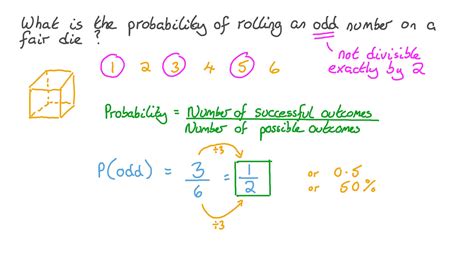 What is the probability of rolling an odd number on a
fair die ?
not divisible
exactly by 2
1 2 3 4 5 6
Probability = Number of successful outcomes
Number of possible outcomes
÷3
P(odd) = 3/6 = 1/2
or 0.5
or 50%
÷3